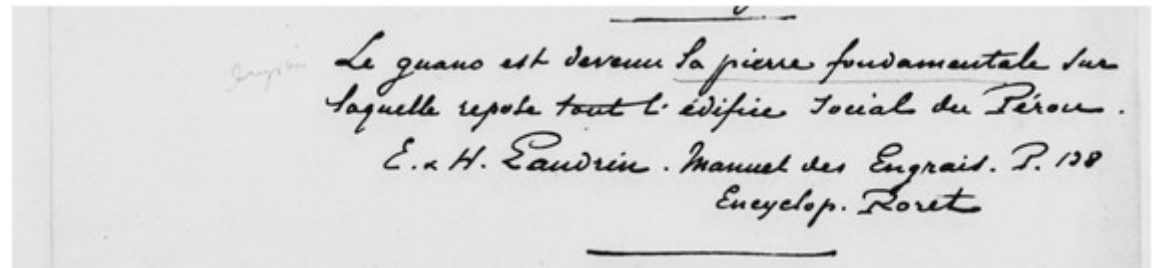 engrais
Le guano est devenu la pierre fondamentale sur
laquelle repose tout l'édifice social du Pérou.
E. & H. Landrin. Manuel des Engrais. P. 138
Encyclop. Roret